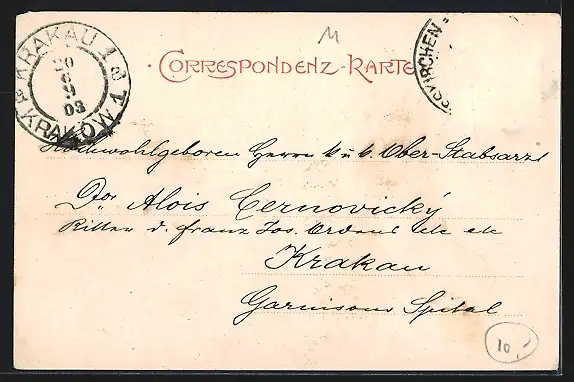 M
Correspondenz-Karte
KRAKAU 1
KRAKÓW
03
KIRCHEN
Hochwohlgeboren Herrn k. u. k. Ober-Stabsarzt
Dor Alois Cernovický
Ritter d. Franz Jos. Ordens etc etc
Krakau
Garnisons Spital
10,-